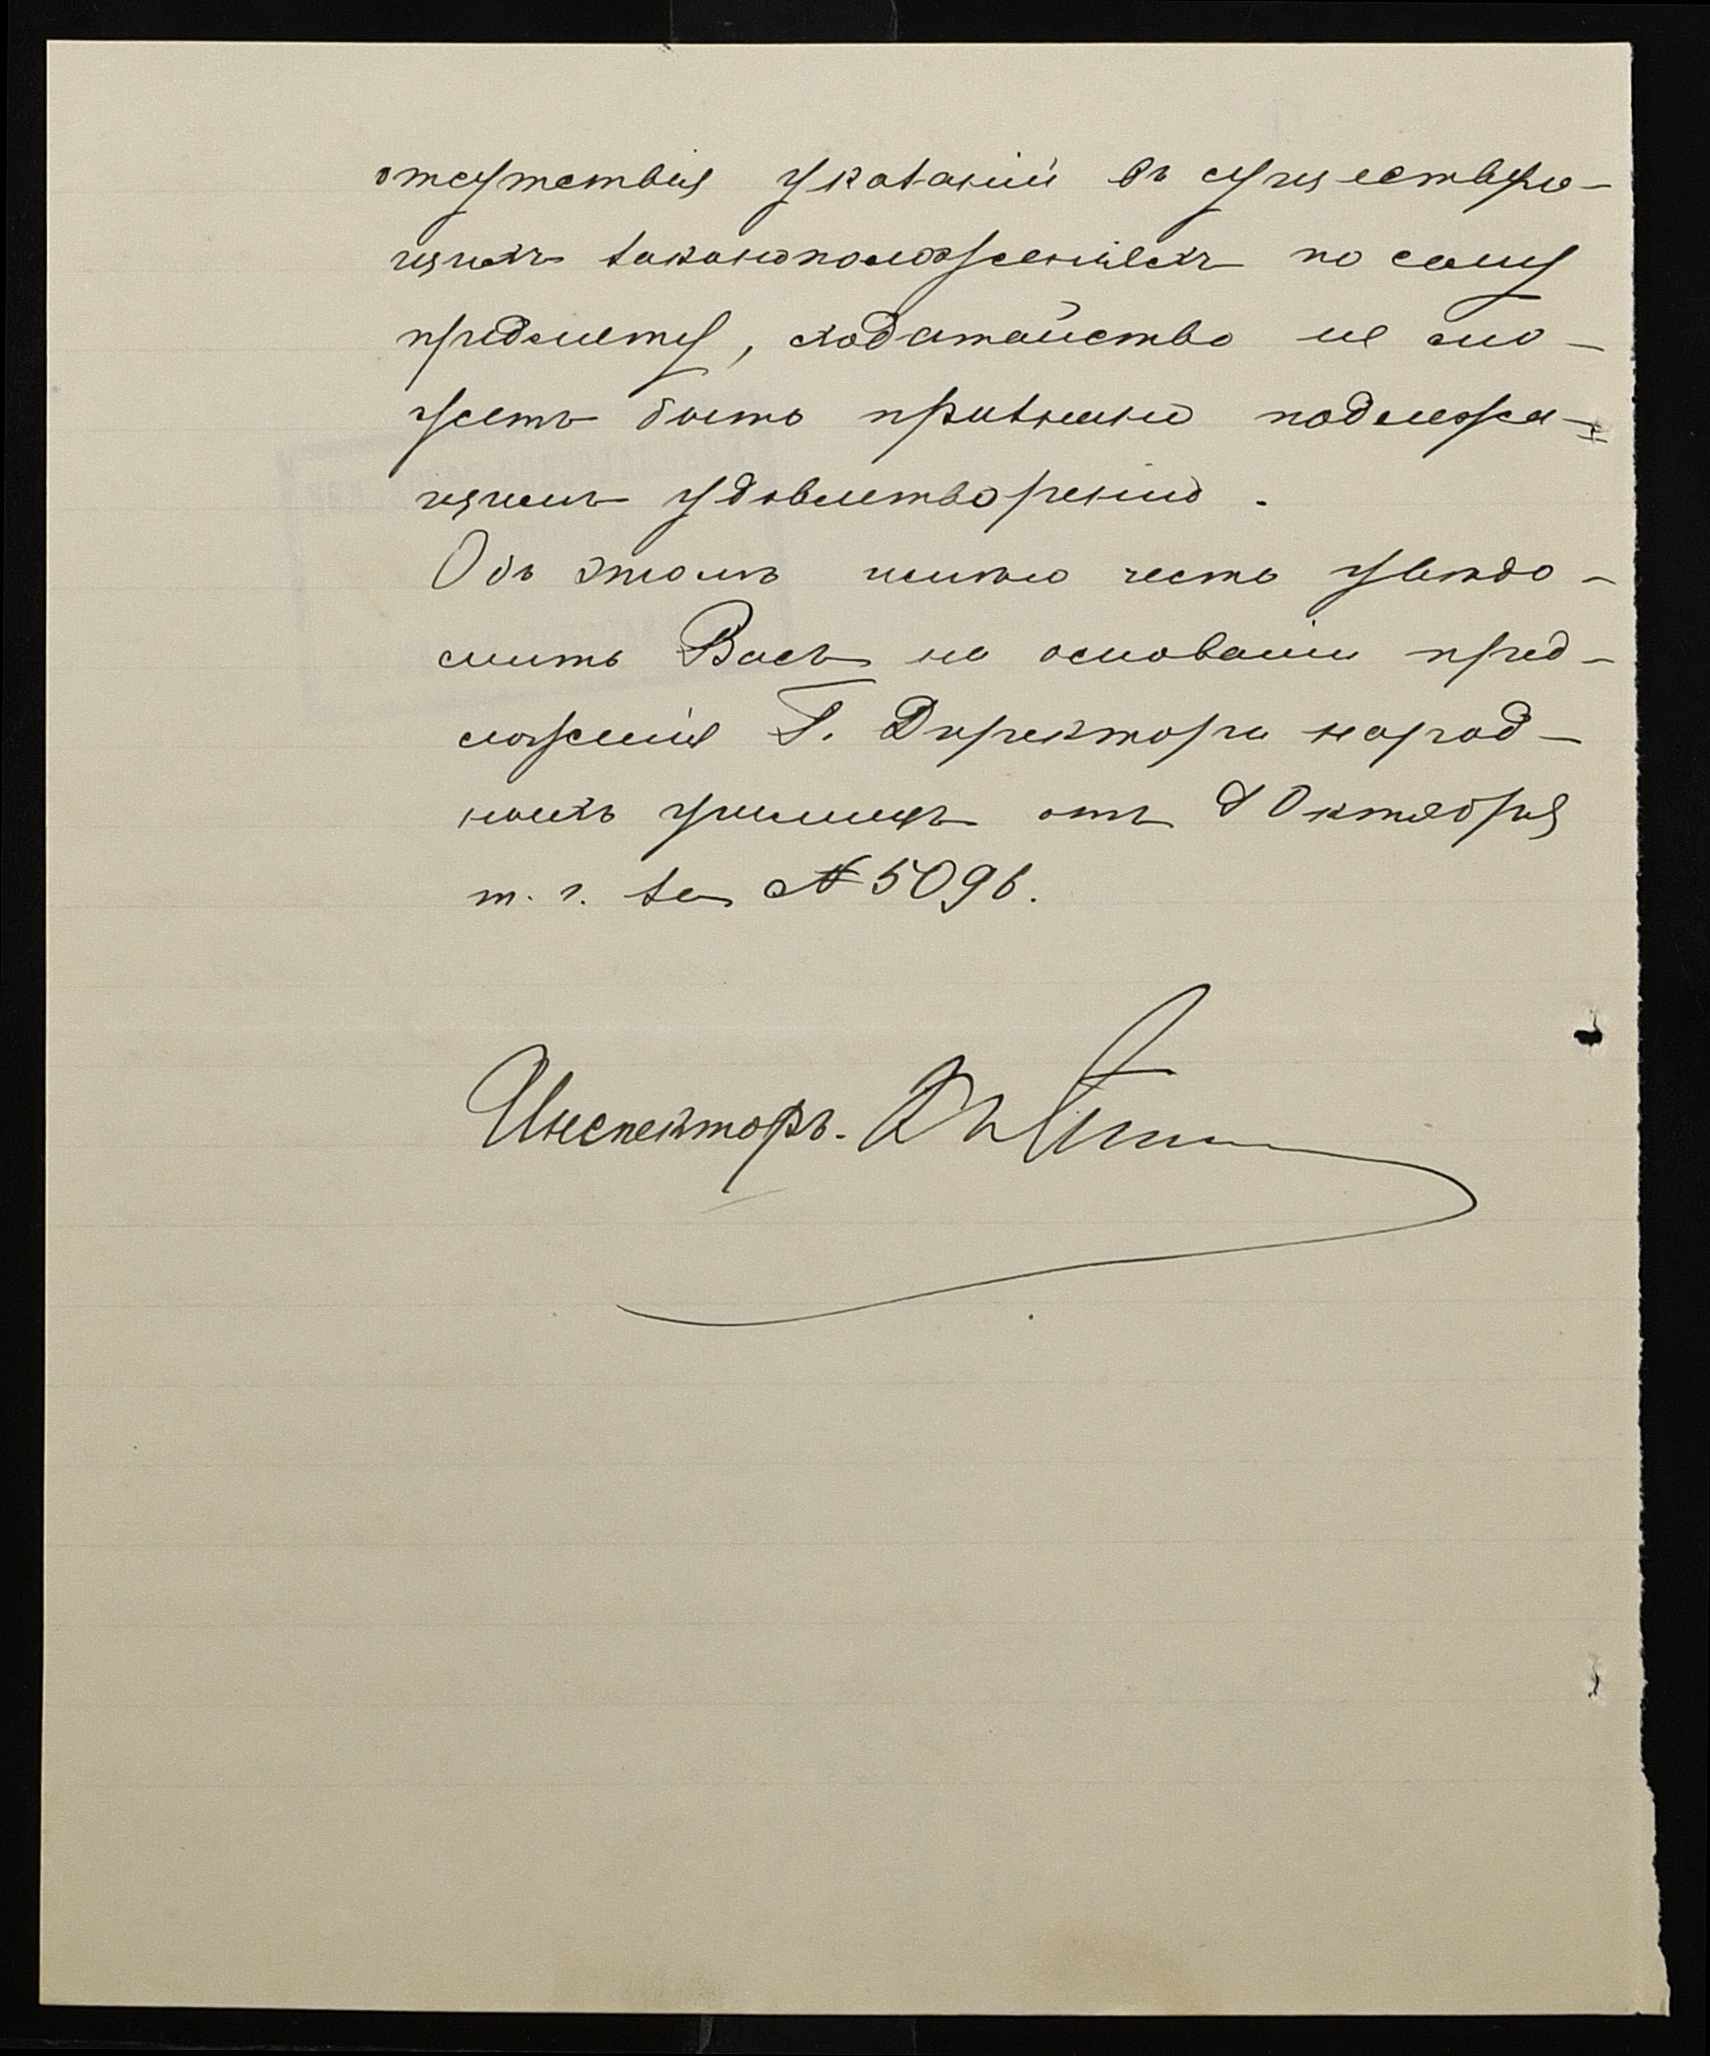 отсутствія указаній въ существую-
щихъ законоположеніяхъ по сему
предмету, ходатайство не мо-
жетъ быть признано подлежа-
щимъ удовлетворенію.
Объ этомъ имѣю честь увѣдо-
мить Васъ на основаніи пред-
ложенія Г. Директора народ-
ныхъ училищъ отъ 8 Октября
т. г. за № 5096.
Инспекторъ.